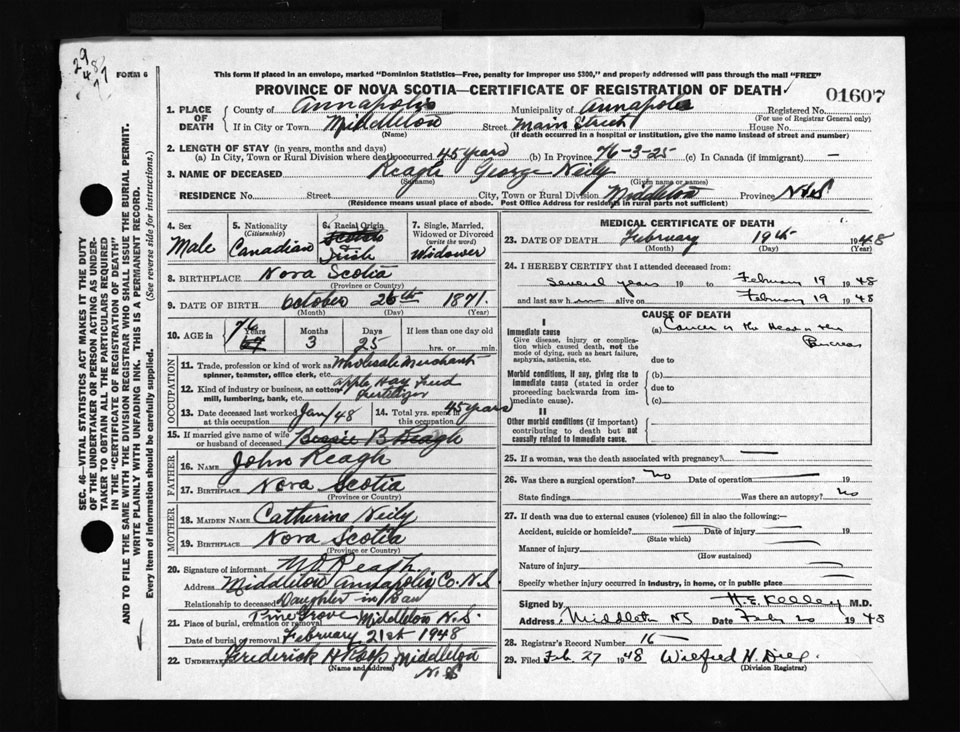 29
48
77
FORM 6
This form if placed in an envelope, marked "Dominion Statistics—Free, penalty for improper use $300," and properly addressed will pass through the mail "FREE"
PROVINCE OF NOVA SCOTIA—CERTIFICATE OF REGISTRATION OF DEATH
01607
1. PLACE OF DEATH { County of Annapolis Municipality of Annapolis Registered No.
(For use of Registrar General only)
If in City or Town Middleton Street Main Street House No.
(Name) (If death occurred in a hospital or institution, give the name instead of street and number)
2. LENGTH OF STAY (in years, months and days)
(a) In City, Town or Rural Division where death occurred 45 years (b) In Province 76-3-25 (c) In Canada (if immigrant) —
3. NAME OF DECEASED Reagh George Neily
(Surname) (Given name or names)
RESIDENCE No. Street City, Town or Rural Division Middleton Province N.S
(Residence means usual place of abode. Post Office Address for residents in rural parts not sufficient)
4. Sex
Male
5. Nationality
(Citizenship)
Canadian
6. Racial Origin
Irish
7. Single, Married, Widowed or Divorced
(write the word)
Widower
8. BIRTHPLACE Nova Scotia
(Province or Country)
9. DATE OF BIRTH October 26th 1871.
(Month) (Day) (Year)
10. AGE in { 76 Years 3 Months 25 Days If less than one day old
67 hrs. or min.
OCCUPATION
11. Trade, profession or kind of work as Wholesale Merchant
spinner, teamster, office clerk, etc.
12. Kind of industry or business, as cotton Apple Hay Feed
mill, lumbering, bank, etc. Fertilizer
13. Date deceased last worked Jan/48 14. Total yrs. spent in 45 years
at this occupation this occupation
15. If married give name of wife Bessie B Reagh
or husband of deceased
FATHER
16. NAME John Reagh
17. BIRTHPLACE Nova Scotia
(Province or Country)
MOTHER
18. MAIDEN NAME Catherine Neily
19. BIRTHPLACE Nova Scotia
(Province or Country)
20. Signature of informant M D Reagh
Address Middleton Annapolis Co. N.S
Relationship to deceased Daughter in Law
21. Place of burial, cremation or removal Pine Grove Middleton N.S.
Date of burial or removal February 21st 1948
22. Undertaker Frederick H Roop Middleton
(Name and address) N.S
MEDICAL CERTIFICATE OF DEATH
23. DATE OF DEATH February 19th 1948
(Month) (Day) (Year)
24. I HEREBY CERTIFY that I attended deceased from:
Several years 19 to February 19 1948
and last saw him alive on February 19 1948
CAUSE OF DEATH
I
Immediate cause (a) Cancer in the Head of the
Give disease, injury or complication which caused death, not the mode of dying, such as heart failure, asphyxia, asthenia, etc. Pancreas
due to
Morbid conditions, if any, giving rise to immediate cause (stated in order proceeding backwards from immediate cause).
(b)
due to
(c)
II
Other morbid conditions (if important) contributing to death but not causally related to immediate cause.
25. If a woman, was the death associated with pregnancy? —
26. Was there a surgical operation? No Date of operation — 19
State findings Was there an autopsy? No
27. If death was due to external causes (violence) fill in also the following:—
Accident, suicide or homicide? — Date of injury — 19
(State which)
Manner of injury —
(How sustained)
Nature of injury —
Specify whether injury occurred in industry, in home, or in public place —
Signed by H. E. Kelley M.D.
Address Middleton NS Date Feb 20 1948
28. Registrar's Record Number 16
29. Filed Feb. 27 1948 Wilfred H.
(Division Registrar)
SEC. 46—VITAL STATISTICS ACT MAKES IT THE DUTY
OF THE UNDERTAKER OR PERSON ACTING AS UNDER-
TAKER TO OBTAIN ALL THE PARTICULARS REQUIRED
IN THE "CERTIFICATE OF REGISTRATION OF DEATH"
AND TO FILE THE SAME WITH THE DIVISION REGISTRAR WHO SHALL ISSUE THE BURIAL PERMIT.
WRITE PLAINLY WITH UNFADING INK. THIS IS A PERMANENT RECORD.
Every item of information should be carefully supplied. (See reverse side for instructions.)